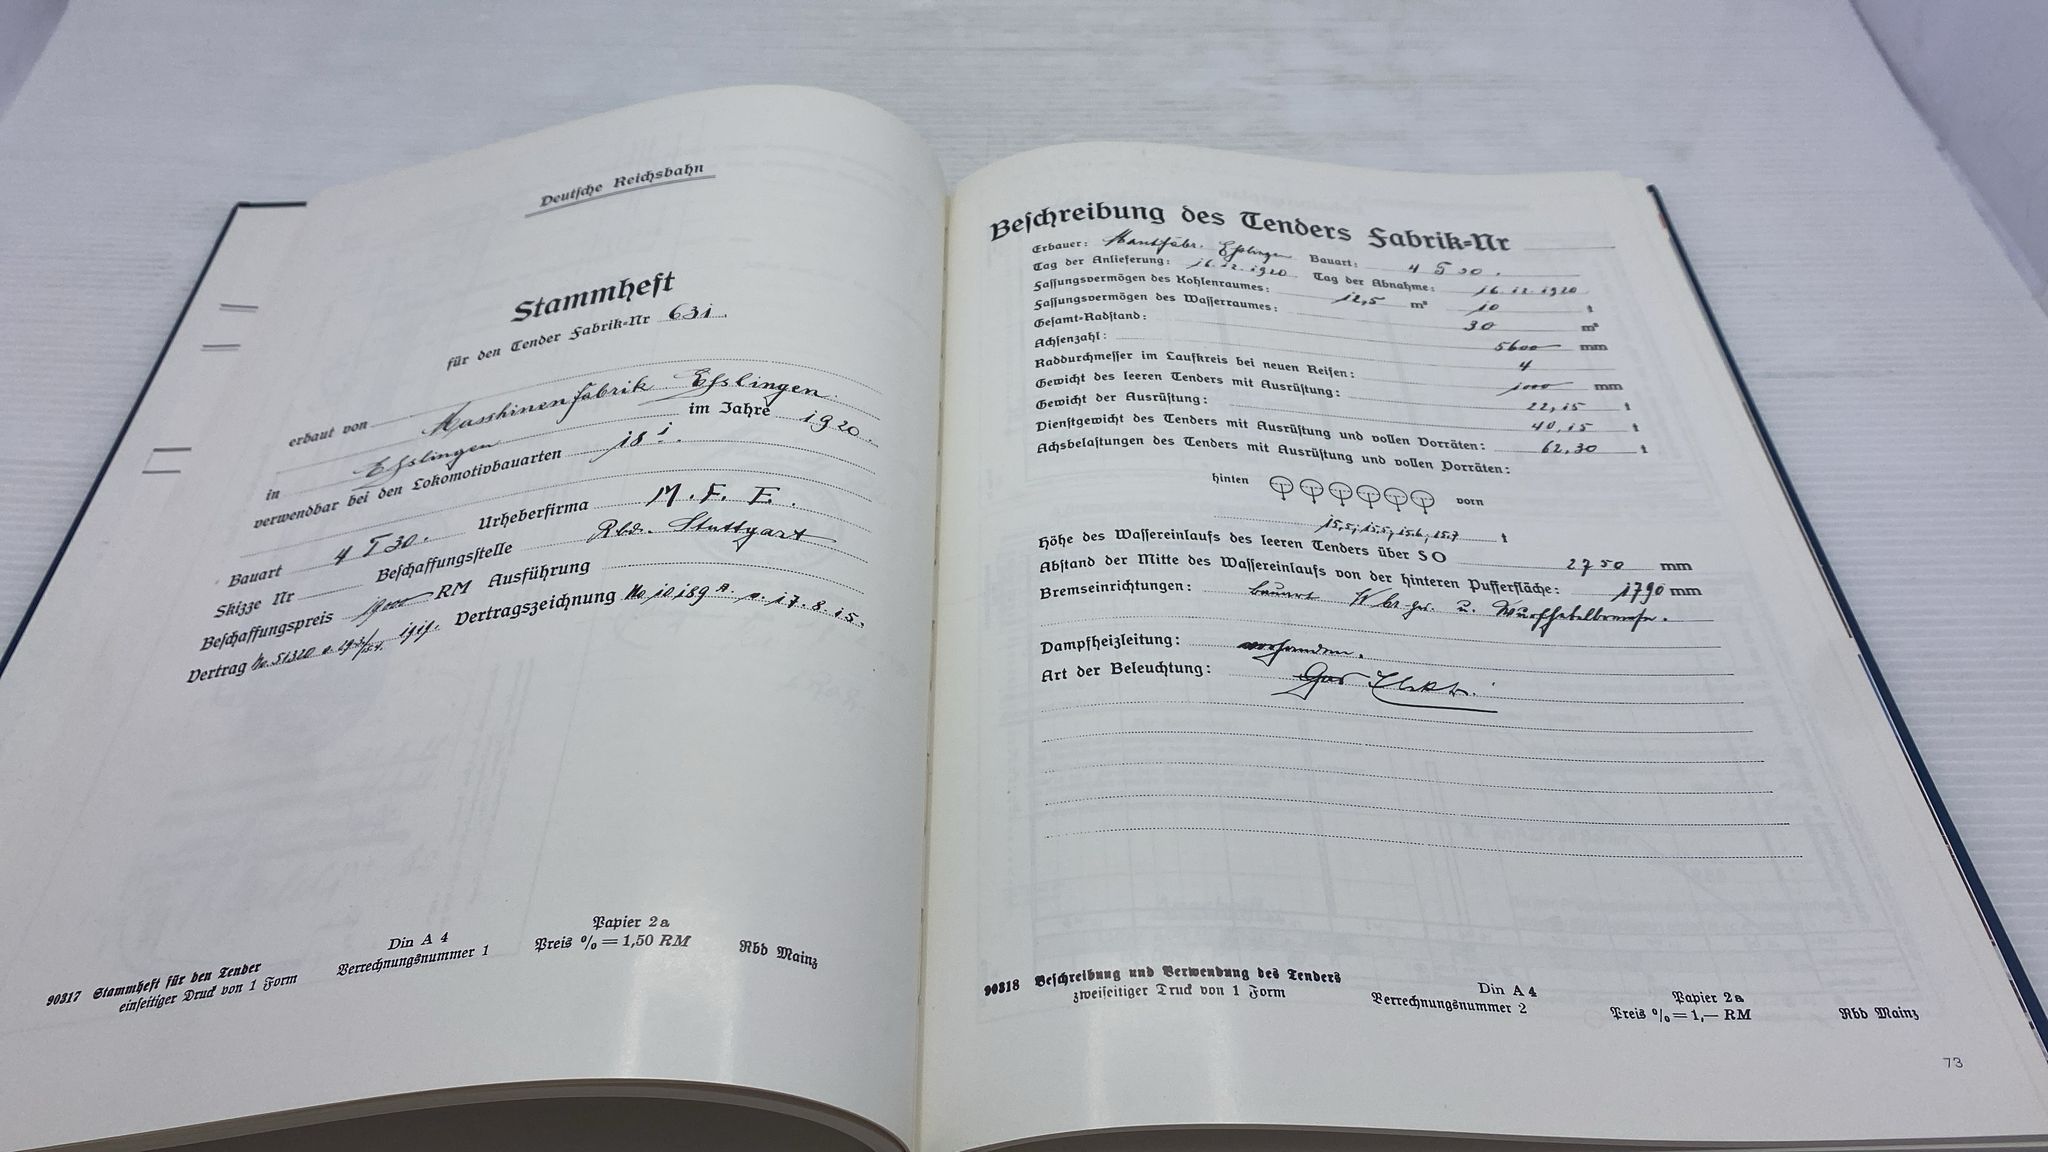 Deutsche Reichsbahn
Stammheft
für den Tender Fabrik-Nr 631.
erbaut von Maschinenfabrik Esslingen
in Esslingen im Jahre 1920.
verwendbar bei den Lokomotivbauarten 18¹.
Bauart 4 T 30. Urheberfirma M. F. E.
Skizze Nr Beschaffungsstelle Rbd. Stuttgart
Beschaffungspreis RM Ausführung
Vertrag No. 51320 Vertragszeichnung No. 10189 A. v. 17.8.15.
90317 Stammheft für den Tender
einseitiger Druck von 1 Form
Din A 4
Verrechnungsnummer 1
Papier 2a
Preis % = 1,50 RM
Rbd Mainz
Beschreibung des Tenders Fabrik-Nr
Erbauer: Esslingen Bauart: 4 T 30.
Tag der Anlieferung: 16.12.1920 Tag der Abnahme: 16.12.1920
Fassungsvermögen des Kohlenraumes: 12,5 m³ 10 t
Fassungsvermögen des Wasserraumes: 30 m³
Gesamt-Radstand: 5600 mm
Achsenzahl: 4
Raddurchmesser im Laufkreis bei neuen Reifen: 1000 mm
Gewicht des leeren Tenders mit Ausrüstung: 22,15 t
Gewicht der Ausrüstung: 40,15 t
Dienstgewicht des Tenders mit Ausrüstung und vollen Vorräten: 62,30 t
Achsbelastungen des Tenders mit Ausrüstung und vollen Vorräten:
hinten vorn
15,5; 15,5; 15,6; 15,7 t
Höhe des Wassereinlaufs des leeren Tenders über SO 2750 mm
Abstand der Mitte des Wassereinlaufs von der hinteren Pufferfläche: 1790 mm
Bremseinrichtungen: Bauart W br. u. Wurfhebelbremse.
Dampfheizleitung: vorhanden.
Art der Beleuchtung: Gas Elektr.
90318 Beschreibung und Verwendung des Tenders
zweiseitiger Druck von 1 Form
Din A 4
Verrechnungsnummer 2
Papier 2a
Preis % = 1,— RM
Rbd Mainz
73